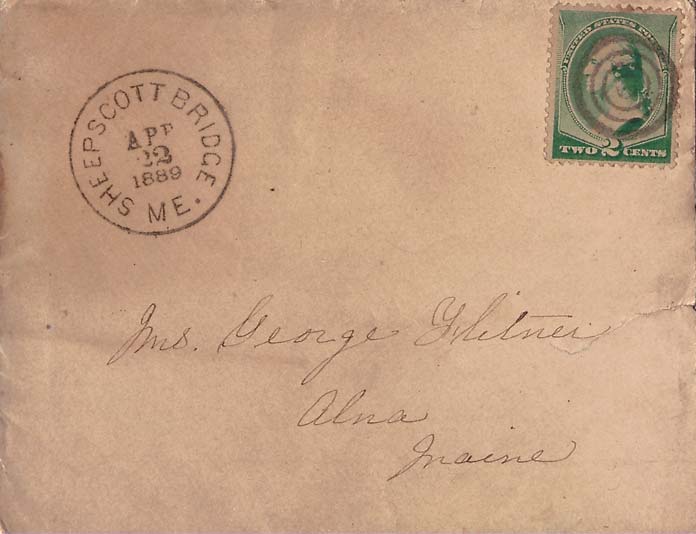 SHEEPSCOTT BRIDGE
APR
22
1889
ME.
UNITED STATES POSTAGE
TWO 2 CENTS
Mrs. George Flitner
Alna
Maine